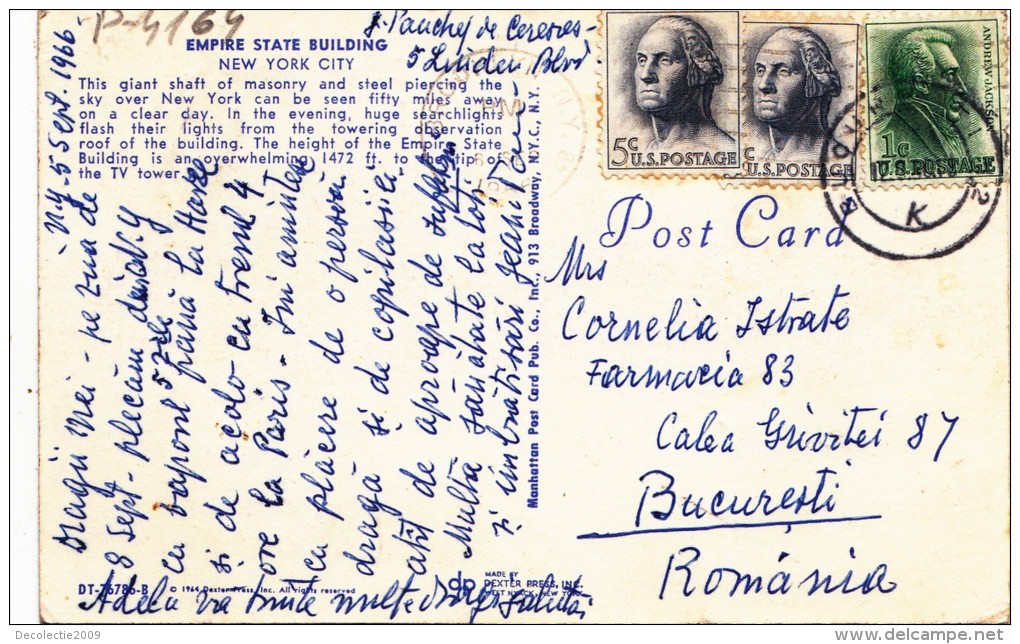 P-4164
EMPIRE STATE BUILDING
NEW YORK CITY
This giant shaft of masonry and steel piercing the
sky over New York can be seen fifty miles away
on a clear day. In the evening, huge searchlights
flash their lights from the towering observation
roof of the building. The height of the Empire State
Building is an overwhelming 1472 ft. to the tip of
the TV tower.
5 Linden Blvd
N.Y - 5 Sept. 1966
Dragii mei - pe ziua de
8 Sept - plecăm din N.Y
cu vaporul 5 zile până la Havre
și de acolo cu trenul 4
ore la Paris - Îmi amintesc
cu plăcere de o persoană
dragă și de copilașii
atît de aproape de
Multă sănătate la toți
și îmbrățișări
Adela vă trimite multe salutări
Manhattan Post Card Pub. Co., Inc., 913 Broadway, N.Y.C., N.Y.
DT-76786-B
© 1964 Dexter Press, Inc. All rights reserved
dp
MADE BY
DEXTER PRESS, INC.
WEST NYACK, NEW YORK
5c
U.S. POSTAGE
c
U.S. POSTAGE
ANDREW JACKSON
1c
U.S. POSTAGE
K
Post Card
Mrs
Cornelia Istrate
Farmacia 83
Calea Griviței 87
București
România
Decolectie2009
delcampe.net